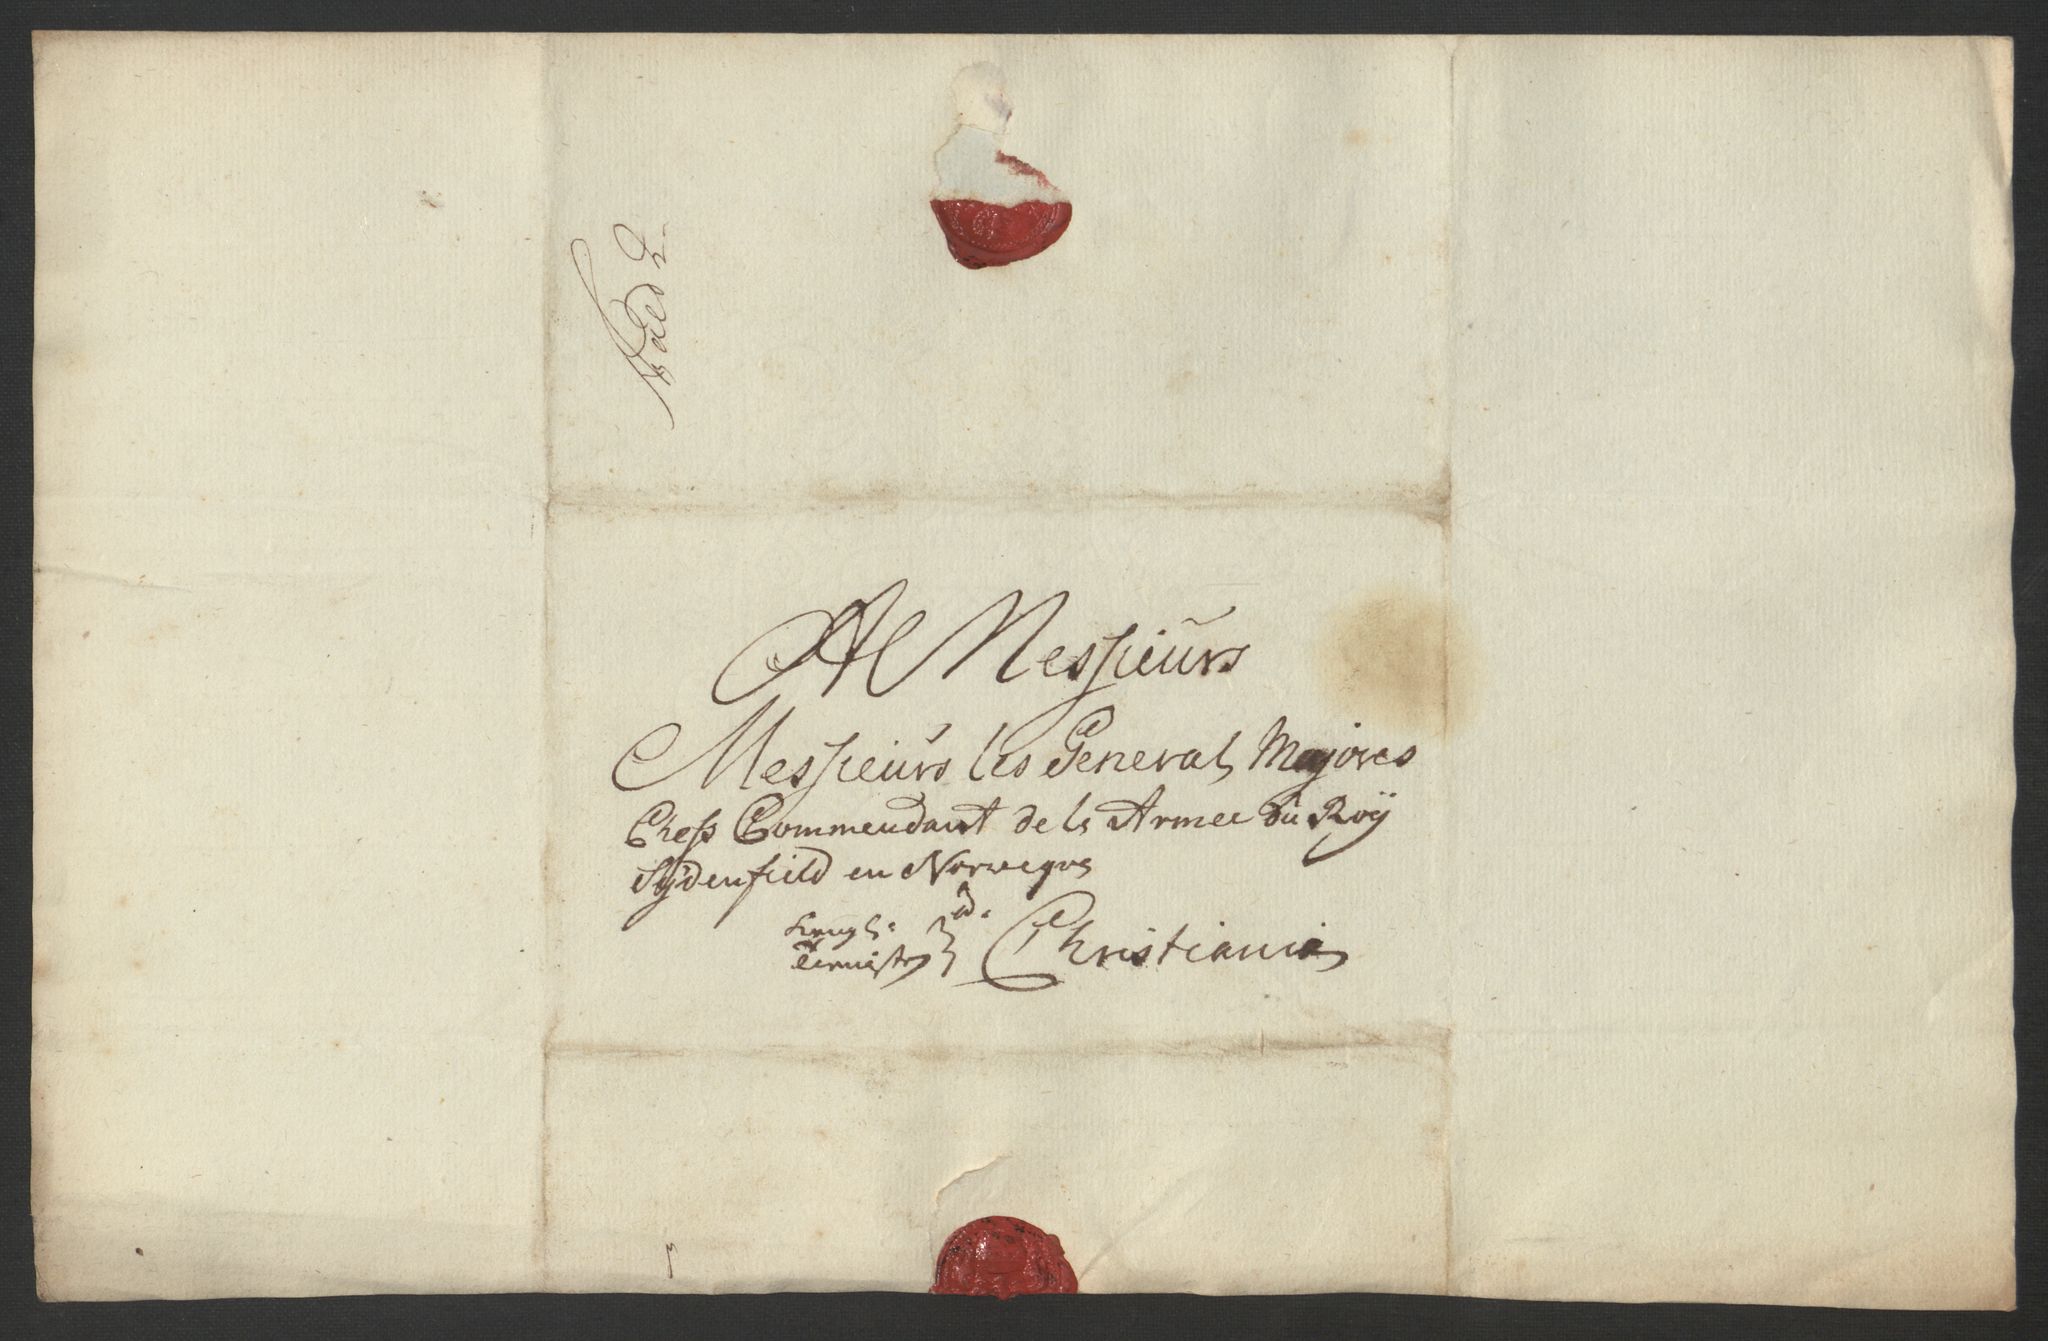 A Messieurs
Messieurs les General Majores
Chefs Commendant de la Armee du Roÿ
Sÿdenfield en Norwegve
Kongl: 
Tieniste
ad.
Christiania